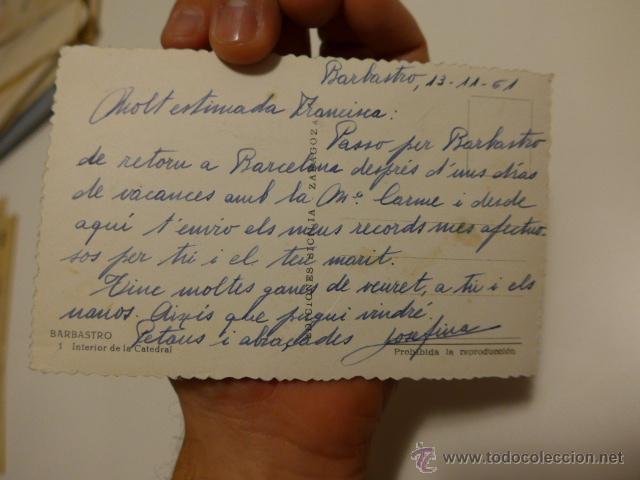 Barbastro, 13-11-61
Molt estimada Francisca:
Passo per Barbastro
de retorn a Barcelona després d'uns dias
de vacances amb la Mª Carme i desde
aquí t'envio els meus records mes afectuo-
sos per tu i el teu marit.
Tinc moltes ganes de veuret, a tu i els
nanos. Aixis que pugui vindré.
Petons i abraçades Josefina
BARBASTRO
1 Interior de la Catedral
EDICIONES SICILIA ZARAGOZA
Prohibida la reproducción
www.todocoleccion.net